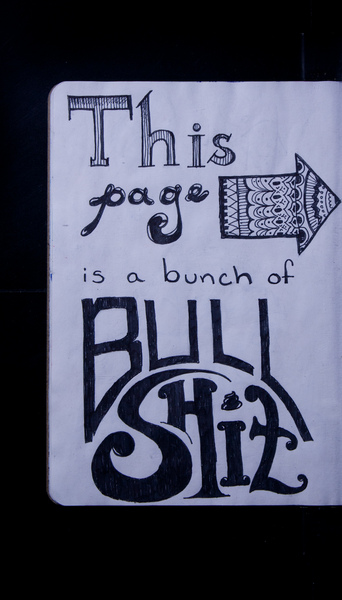 This
page
is a bunch of
BULL
SHiT